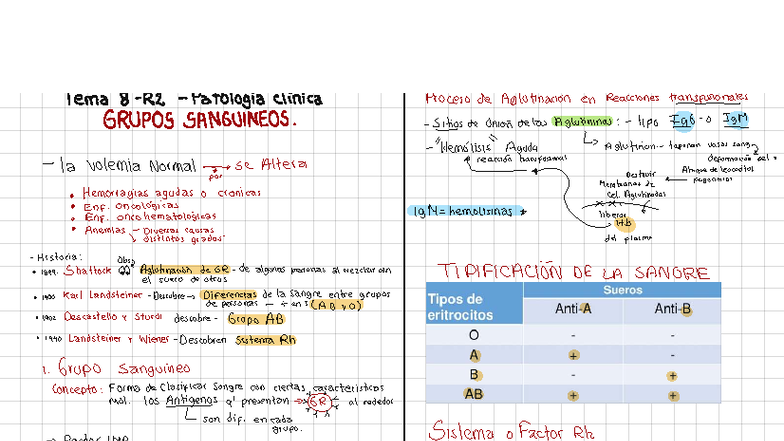 Tema 8 -R2 - Patología clínica
GRUPOS SANGUINEOS.
- la Volemia Normal por se Altera
• Hemorragias agudas o cronicas
• Enf. oncológicas
• Enf. oncohematológicas
• Anemias - Diversas causas
distintos grados
- Historia:
• 1899. Shattock Obs Aglutinación de GR - de algunas personas al mezclar con
el suero de otros
• 1900 Karl Landsteiner - Descubre → Diferencias de la sangre entre grupos
de personas (A B y O)
• 1902 Descastello y Sturdi descubre - Grupo AB
• 1940 Landsteiner y Wiener - Descubren Sistema Rh
1. Grupo Sanguineo
Concepto: Forma de Clasificar Sangre con ciertas características
mol. los Antígenos q' presentan → GR al rededor
son dif. en cada
grupo.
Proceso de Aglutinación en Reacciones transfusionales
- Sitios de Unión de las Aglutininas: - tipo IgG - o IgM
- "Hemólisis" Aguda
reacción transfusional
Aglutinan - taponan vasos sang
deformación del
Ataque de leucocitos
fagocitarios
Destruir
Membranas de
Cel. Aglutinadas
liberar
Hb
del plasma
IgM = hemolisinas
TIPIFICACIÓN DE LA SANGRE
Tipos de eritrocitos Sueros
Anti-A Anti-B
O - -
A + -
B - +
AB + +
Sistema o Factor Rh